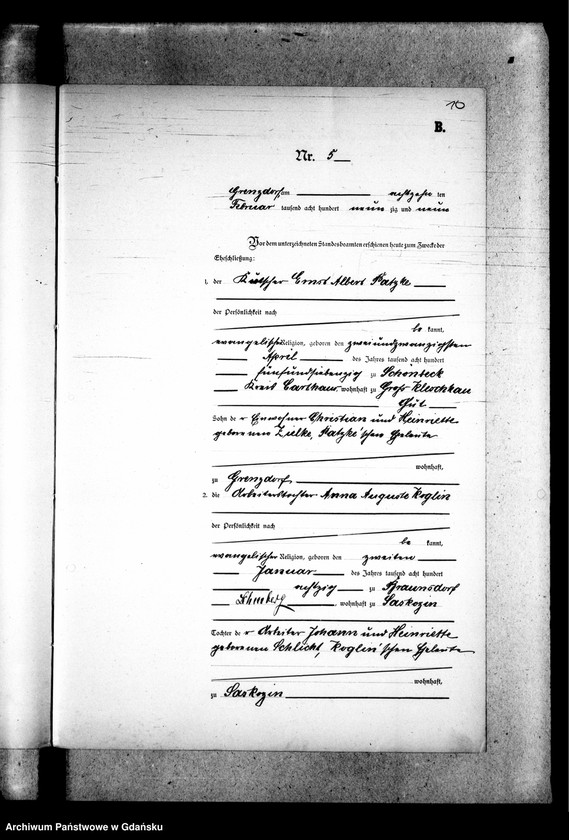 10
B.
Nr. 5
Grenzdorf am achtzehn ten
Februar tausend acht hundert neun zig und neun
Vor dem unterzeichneten Standesbeamten erschienen heute zum Zwecke der
Eheschließung:
1. der Kutscher Ernst Albert Patzke
der Persönlichkeit nach
be kannt,
evangelischer Religion, geboren den zweiundzwanzigsten
April des Jahres tausend acht hundert
fünfundsiebenzig zu Schönbeck
Kreis Carthaus, wohnhaft zu Groß Kleschkau
Gut
Sohn der Einwohner Christian und Heinriette
geborenen Zielke, Patzke'schen Eheleute
wohnhaft,
zu Grenzdorf
2. die Arbeitertochter Anna Auguste Koglin
der Persönlichkeit nach
be kannt,
evangelischer Religion, geboren den zweiten
Januar des Jahres tausend acht hundert
achtzig zu Braunsdorf
, wohnhaft zu Saskozin
Tochter der Arbeiter Johann und Heinriette
geborenen Schlicht, Koglin'schen Eheleute
wohnhaft,
zu Saskozin
Archiwum Państwowe w Gdańsku